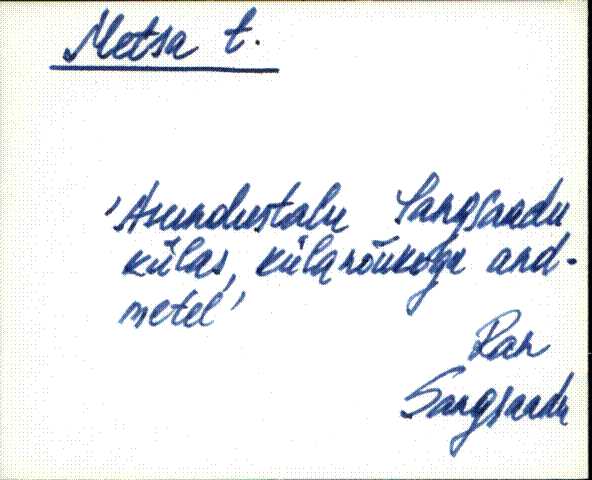 Metsa t.
'Asundustalu Sangsaadu
külas, külanõukogu and-
metel'
Ran
Sangsaadu